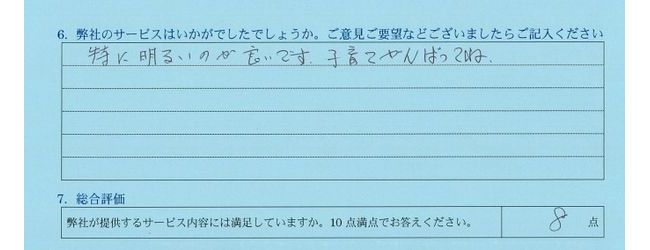 6. 弊社のサービスはいかがでしたでしょうか。ご意見ご要望などございましたらご記入ください
特に明るいのが良いです. 子育てがんばってね.
7. 総合評価
弊社が提供するサービス内容には満足していますか。10 点満点でお答えください。 8 点